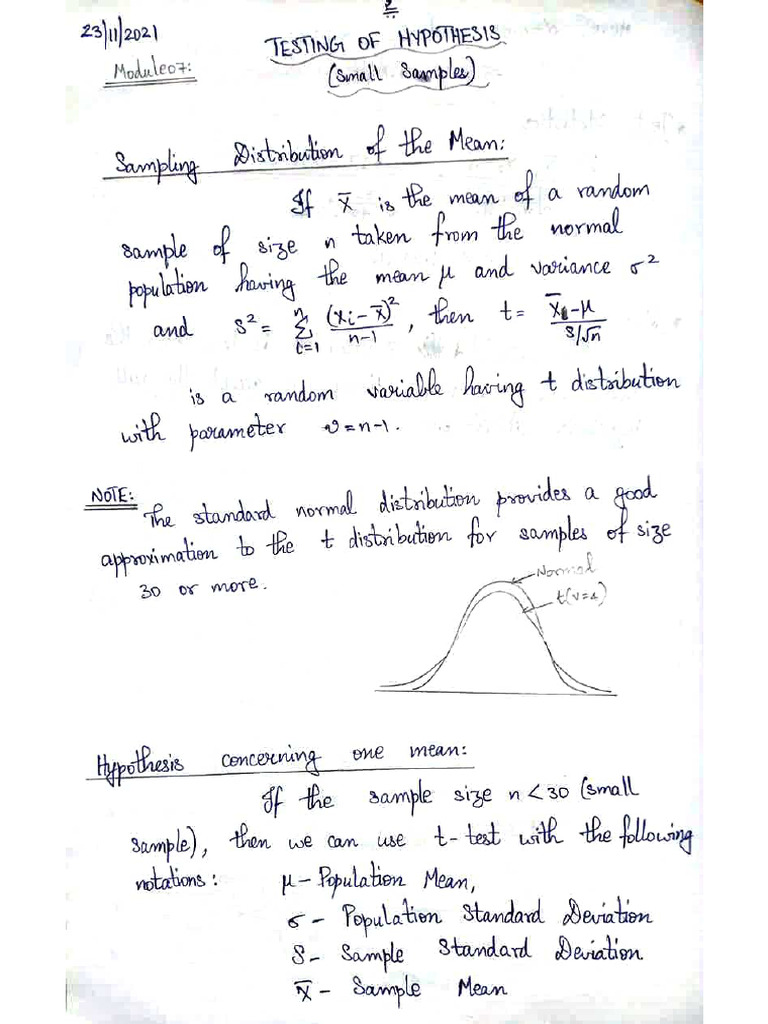 23/11/2021
TESTING OF HYPOTHESIS
Module 07:
(Small Samples)
Sampling Distribution of the Mean:
If x̄ is the mean of a random
sample of size n taken from the normal
population having the mean μ and variance σ²
and S² = Σⁿᵢ₌₁ (xᵢ - x̄)²/(n-1), then t = (x̄ - μ)/(S/√n)
is a random variable having t distribution
with parameter ν = n-1.
NOTE: The standard normal distribution provides a good
approximation to the t distribution for samples of size
30 or more.
Normal
Hypothesis concerning one mean:
If the sample size n < 30 (small
sample), then we can use t-test with the following
notations: μ - Population Mean,
σ - Population Standard Deviation
S - Sample Standard Deviation
x̄ - Sample Mean